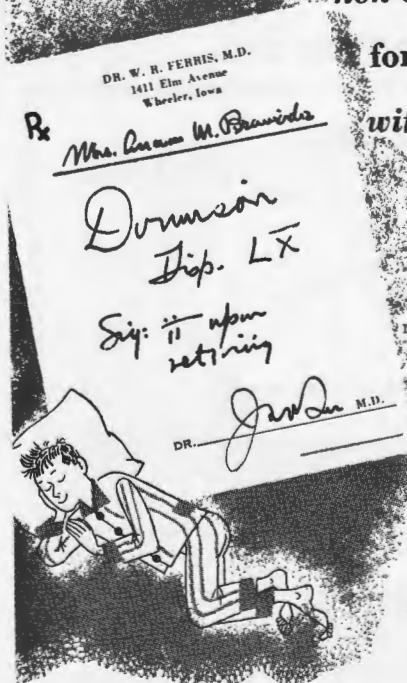 non
for
wit
DR. W. R. FERRIS, M.D.
1411 Elm Avenue
Wheeler, Iowa
Rx
Mrs. M.
Dormison
Disp. LX
Sig: ii upon
retiring
DR. M.D.